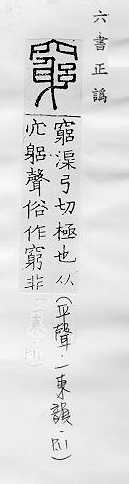 六書正譌
竆
竆渠弓切極也从
穴躳聲俗作窮非
(平聲．一東韻．)